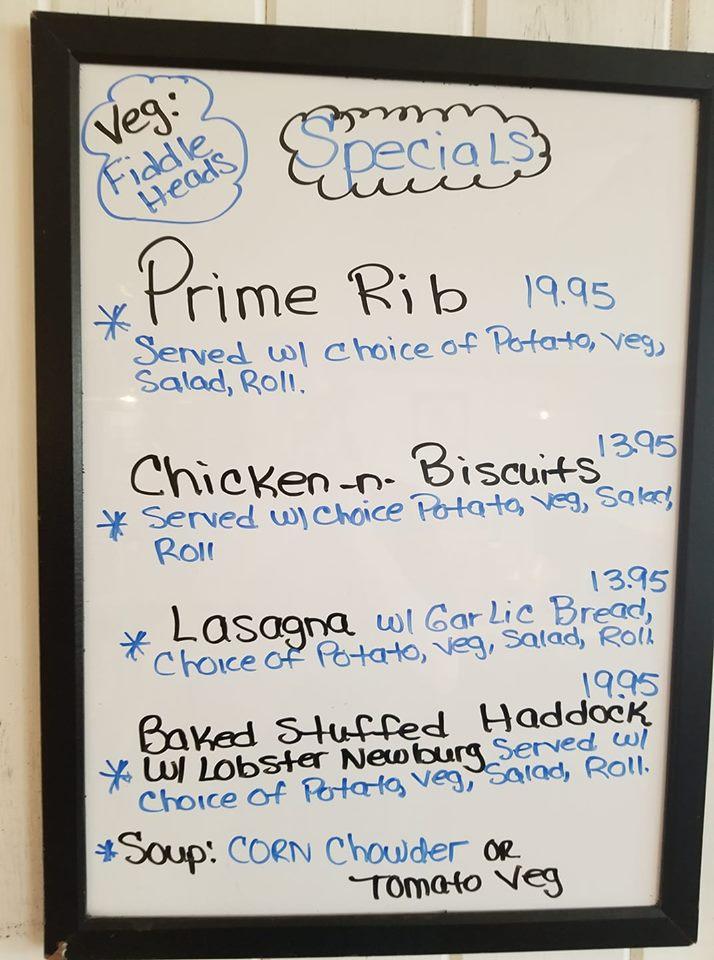 Veg:
Fiddle
Heads
Specials
Prime Rib 19.95
* Served w/ choice of Potato, veg,
Salad, Roll.
13.95
Chicken-n- Biscuits
* Served w/ choice Potato, veg, Salad,
Roll
13.95
Lasagna w/ Garlic Bread,
* Choice of Potato, veg, Salad, Roll
19.95
Baked Stuffed Haddock
* w/ Lobster Newburg Served w/
Choice of Potato, veg, Salad, Roll.
*Soup: CORN Chowder OR
Tomato Veg